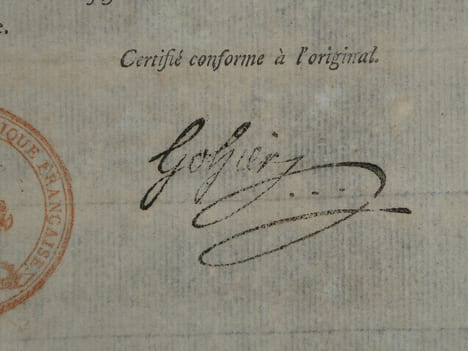 e.
Certifié conforme à l'original.
Gohier
IQUE FRANÇAISE